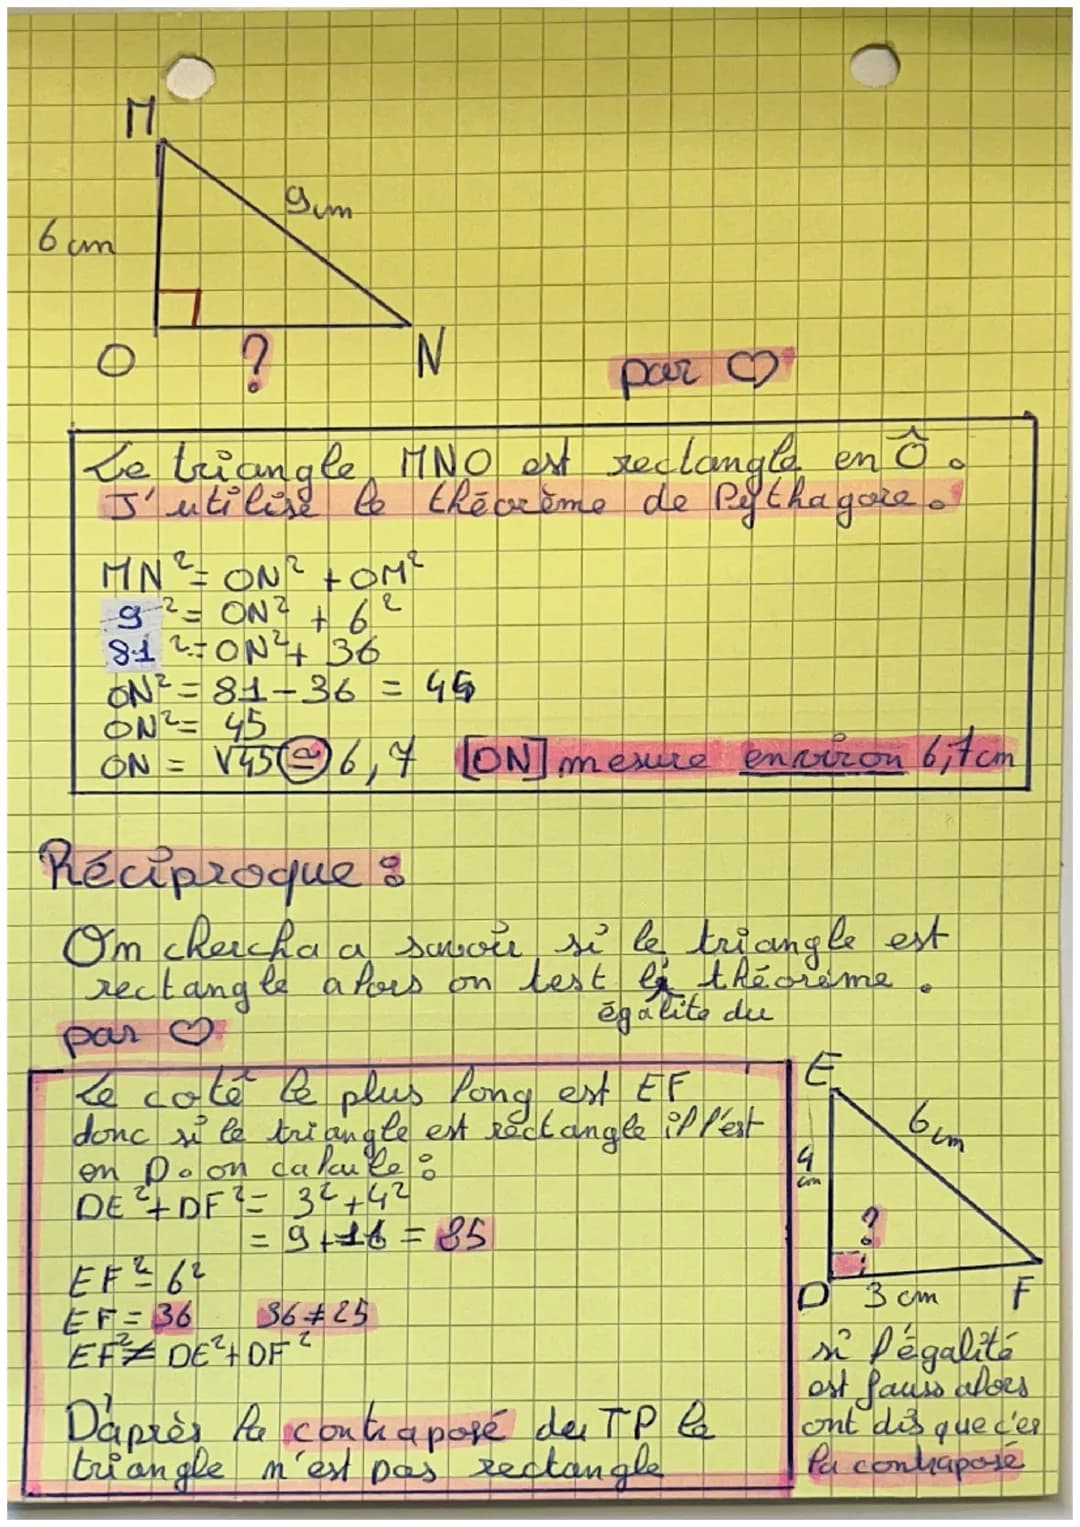 M
9cm
6 cm
O ? N
par ♡
Le triangle MNO est rectangle en Ô.
J'utilise le théorème de Pythagore.
MN² = ON² + OM²
9² = ON² + 6²
81² = ON² + 36
ON² = 81 - 36 = 45
ON² = 45
ON = √45 ≃ 6,7 [ON] mesure environ 6,7cm
Réciproque :
On chercha a savoir si le triangle est
rectangle alors on test la théorème.
égalite du
par ♡
Le coté le plus long est EF
donc si le triangle est rectangle il l'est
en D. on calcule :
DE² + DF² = 3² + 4²
= 9 + 16 = 25
EF² = 6²
EF = 36 36 ≠ 25
EF² ≠ DE² + DF²
D'après la contraposé du TP le
triangle n'est pas rectangle
E
6 cm
4
cm
?
D 3 cm F
si l'égalité
est fauss alors
ont dis que c'es
la contraposé